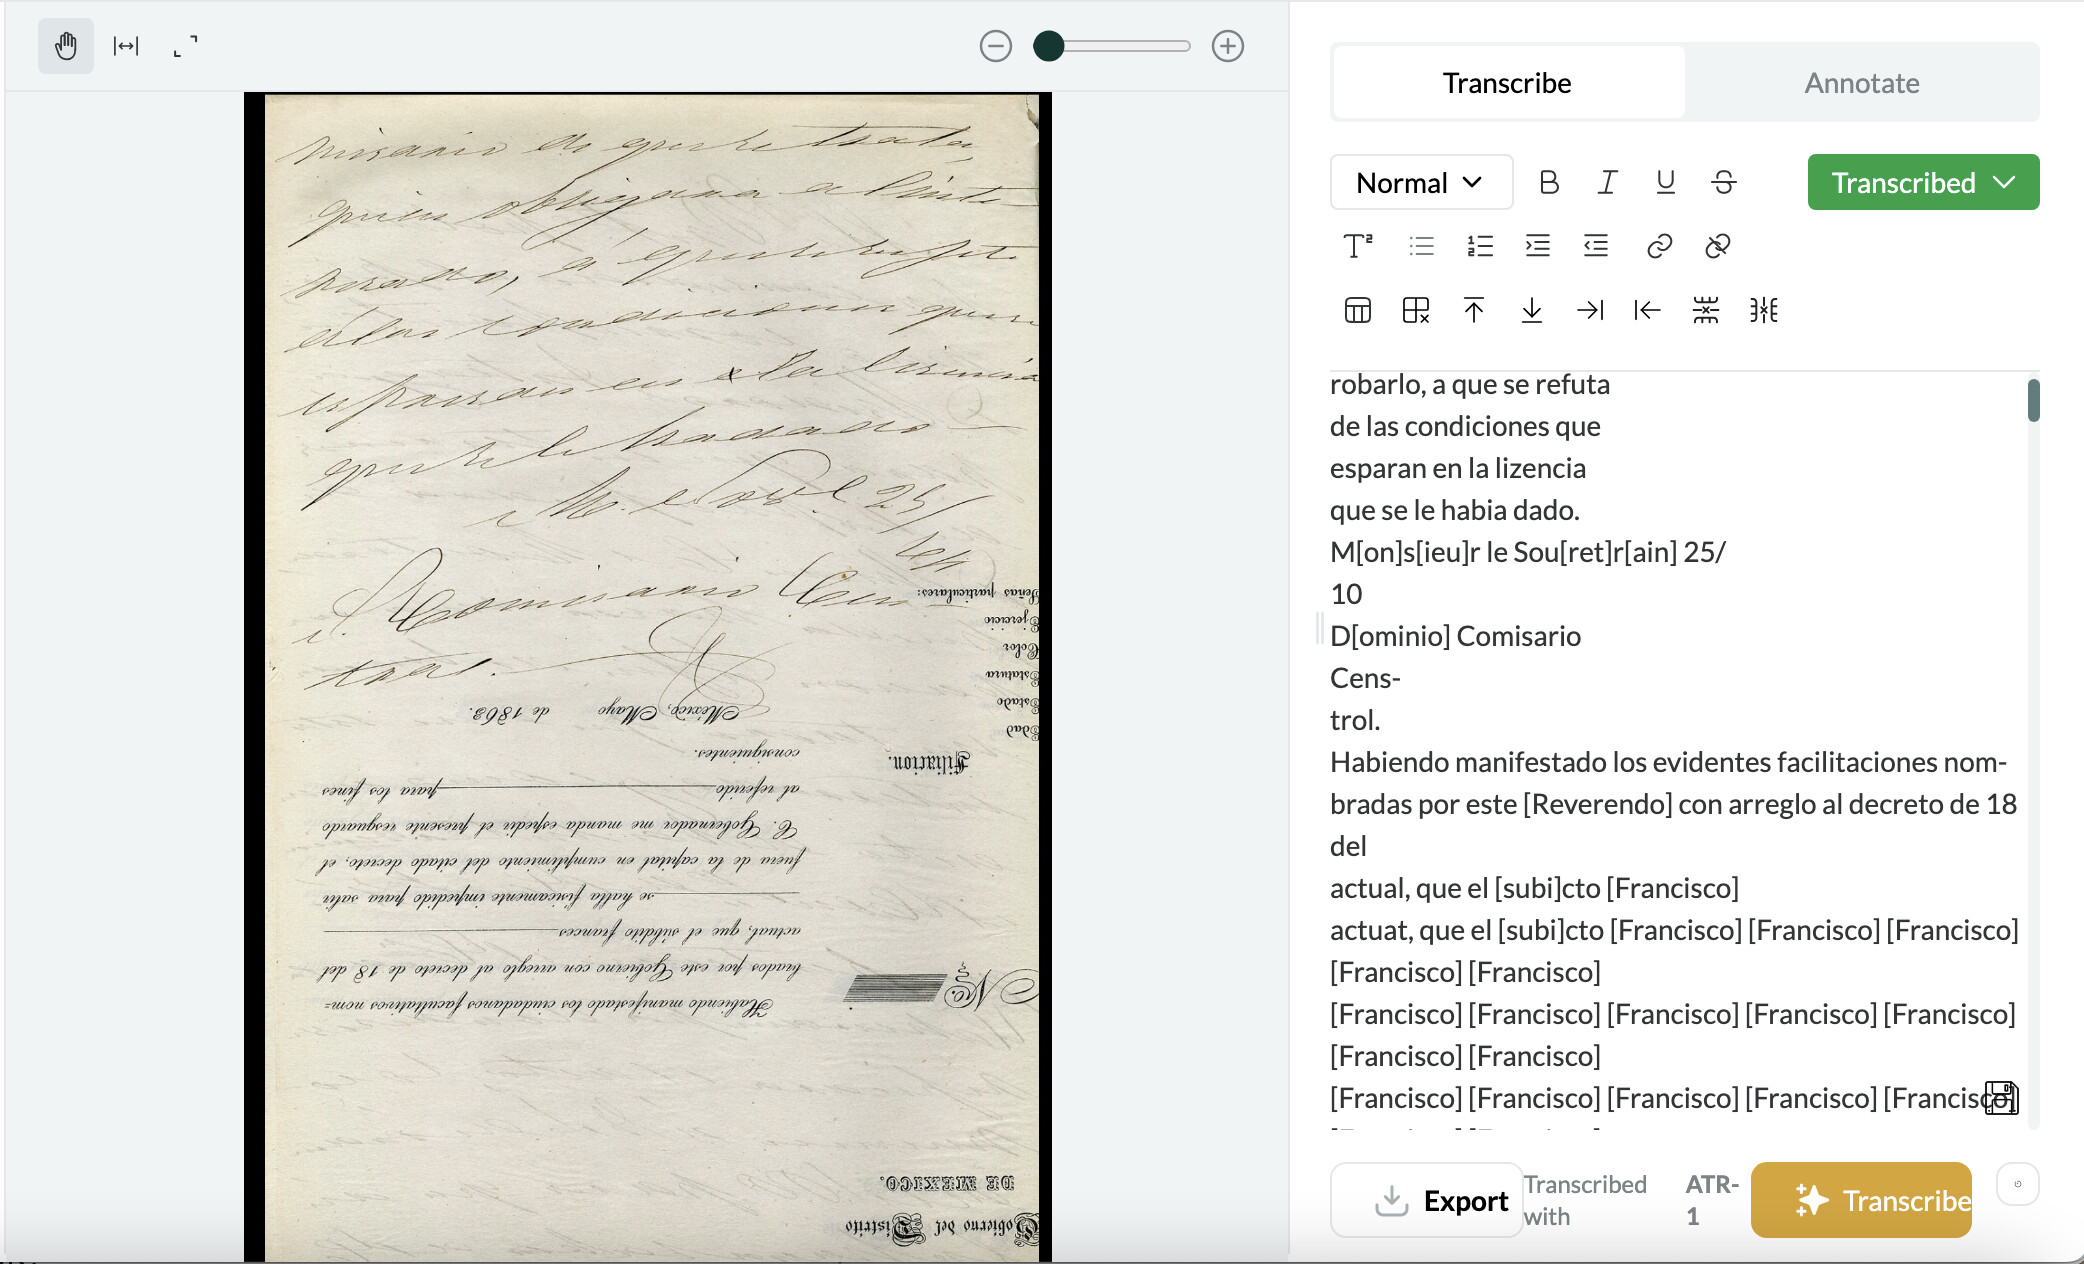 misario de que se trata,
quien obligara a l
a que se sujete
á las condiciones que se
espresan en la licencia
que se le ha dado
M. Nov.e 25/
64
Comisario Cen
tral.
Gobierno del Distrito
DE MEXICO.
No.
Habiendo manifestado los ciudadanos facultativos nom=
brados por este Gobierno con arreglo al decreto de 18 del
actual, que el súbdito frances
se halla fisicamente impedido para salir
fuera de la capital en cumplimiento del citado decreto, el
C. Gobernador me manda espedir el presente resguardo
al referido para los fines
consiguientes.
México, Mayo de 1863.
Filiacion.
Edad
Estado
Estatura
Color
Ejercicio
Señas particulares:
Transcribe
Annotate
Normal
Transcribed
robarlo, a que se refuta
de las condiciones que
esparan en la lizencia
que se le habia dado.
M[on]s[ieu]r le Sou[ret]r[ain] 25/
10
D[ominio] Comisario
Cens-
trol.
Habiendo manifestado los evidentes facilitaciones nom-
bradas por este [Reverendo] con arreglo al decreto de 18
del
actual, que el [subi]cto [Francisco]
actuat, que el [subi]cto [Francisco] [Francisco] [Francisco]
[Francisco] [Francisco]
[Francisco] [Francisco] [Francisco] [Francisco] [Francisco]
[Francisco] [Francisco]
[Francisco] [Francisco] [Francisco] [Francisco] [Francisco]
Export
Transcribed
with
ATR-
1
Transcribe